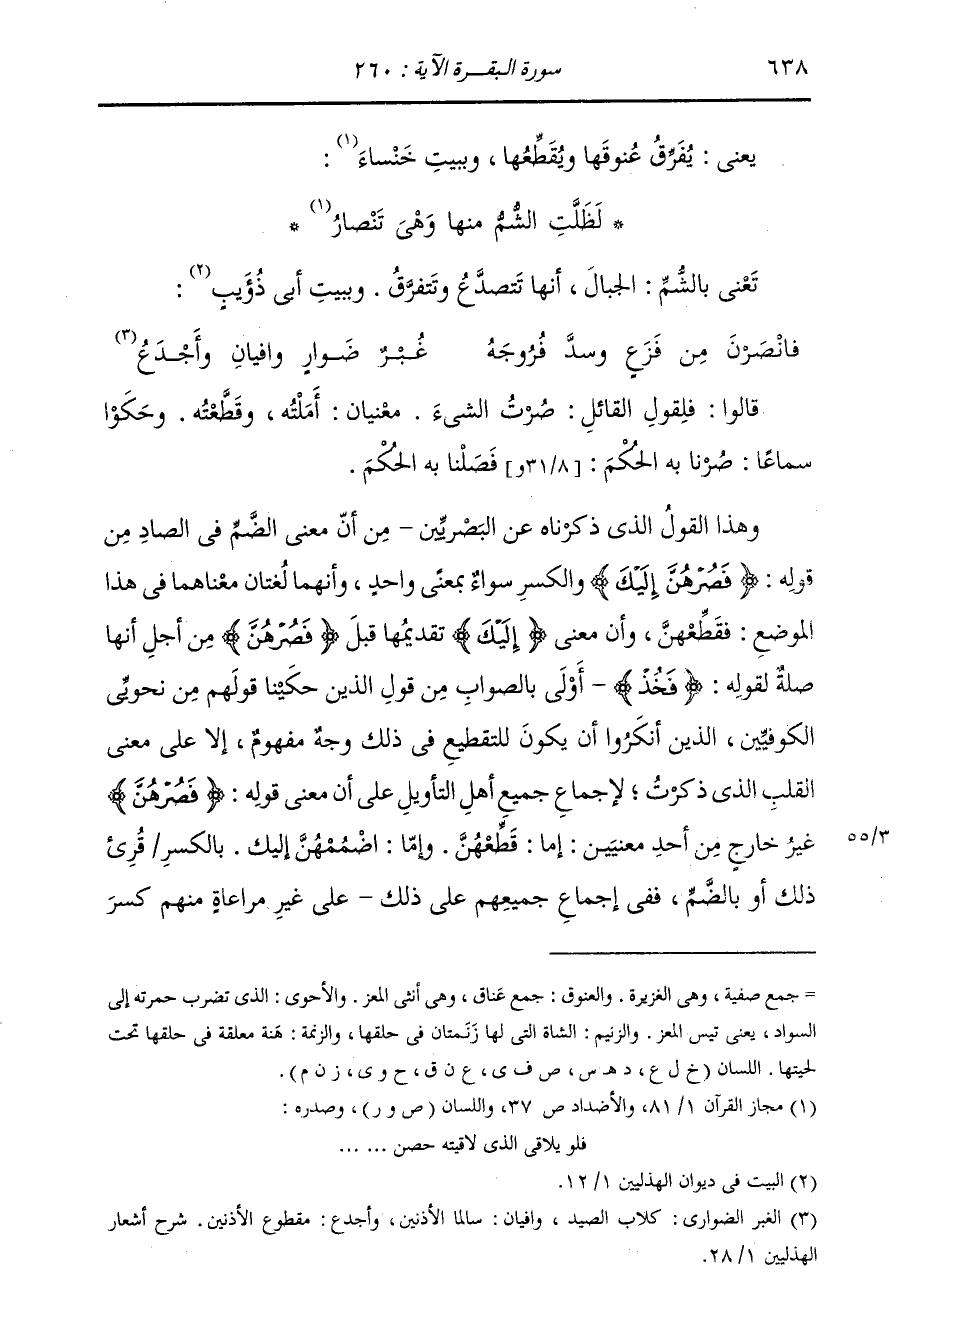 ٦٣٨ سورة البقرة الآية : ٢٦٠
يعنى : يُفَرِّقُ عُنوقَها ويُقَطِّعُها ، وببيتِ خَنْساءَ(١) :
* لَظَلَّتِ الشُّمُّ منها وَهْىَ تَنْصارُ(١) *
تَعْنى بالشُّمِّ : الجبالَ ، أنها تَتصدَّعُ وتَتفرَّقُ . وببيتِ أبى ذُؤَيبٍ(٢) :
فانْصَرْنَ مِن فَزَعٍ وسدَّ فُرُوجَهُ غُـبْـرٌ ضَـوارٍ وافيانِ وأَجْـدَعُ(٣)
قالوا : فلِقولِ القائلِ : صُرْتُ الشىءَ . معْنيان : أَمَلْتُه ، وقَطَّعْتُه . وحَكَوْا
سماعًا : صُرْنا به الحُكْمَ : [٣١/٨و] فَصَلْنا به الحُكْمَ .
وهذا القولُ الذى ذكرْناه عن البَصْريِّين – مِن أنّ معنى الضَّمِّ فى الصادِ مِن
قولِه : ﴿ فَصُرْهُنَّ إِلَيْكَ ﴾ والكسرِ سواءٌ بمعنًى واحدٍ ، وأنهما لُغتان معْناهما فى هذا
الموضعِ : فقَطِّعْهنَّ ، وأن معنى ﴿ إِلَيْكَ ﴾ تقديمُها قبلَ ﴿ فَصُرْهُنَّ ﴾ مِن أجلِ أنها
صلةٌ لقولِه : ﴿ فَخُذْ ﴾ – أَوْلَى بالصوابِ مِن قولِ الذين حكَيْنا قولَهم مِن نحويِّى
الكوفيِّين ، الذين أنكَرُوا أن يكونَ للتقطيعِ فى ذلك وجهٌ مفهومٌ ، إلا على معنى
القلبِ الذى ذكرْتُ ؛ لإجماعِ جميعِ أهلِ التأويلِ على أن معنى قولِه : ﴿ فَصُرْهُنَّ ﴾
غيرُ خارجٍ مِن أحدِ معنيَيـن : إما : قَطِّعْهُنَّ . وإمّا : اضْمُمْهُنَّ إليك . بالكسرِ/ قُرِئ ٥٥/٣
ذلك أو بالضَّمِّ ، ففى إجماعِ جميعِهم على ذلك – على غيرِ مراعاةٍ منهم كسرَ
= جمع صفية ، وهى الغزيرة . والعنوق : جمع عَناق ، وهى أنثى المعز . والأحوى : الذى تضرب حمرته إلى
السواد ، يعنى تيس المعز . والزنيم : الشاة التى لها زَنَمتان فى حلقها ، والزنمة : هَنة معلقة فى حلقها تحت
لحيتها . اللسان (خ ل ع ، د هـ س ، ص ف ى ، ع ن ق ، ح و ى ، ز ن م) .
(١) مجاز القرآن ١/ ٨١، والأضداد ص ٣٧، واللسان (ص و ر) ، وصدره :
فلو يلاقى الذى لاقيته حصن ... ...
(٢) البيت فى ديوان الهذليين ١/ ١٢.
(٣) الغبر الضوارى : كلاب الصيد ، وافيان : سالما الأذنين ، وأجدع : مقطوع الأذنين . شرح أشعار
الهذليين ١/ ٢٨.